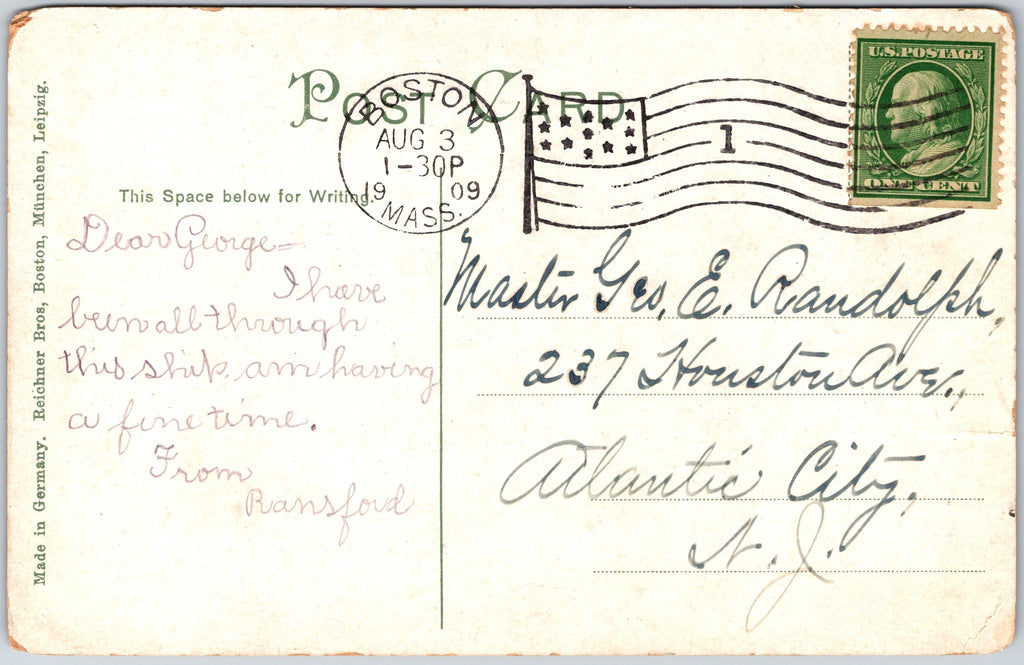 POST CARD
BOSTON
AUG 3
1-30P
19 09
MASS.
1
U.S. POSTAGE
ONE CENT
This Space below for Writing.
Dear George—
I have
been all through
this ship am having
a fine time.
From
Ransford
Master Geo. E. Randolph,
237 Houston Ave.,
Atlantic City,
N. J.
Made in Germany. Reichner Bros, Boston, München, Leipzig.